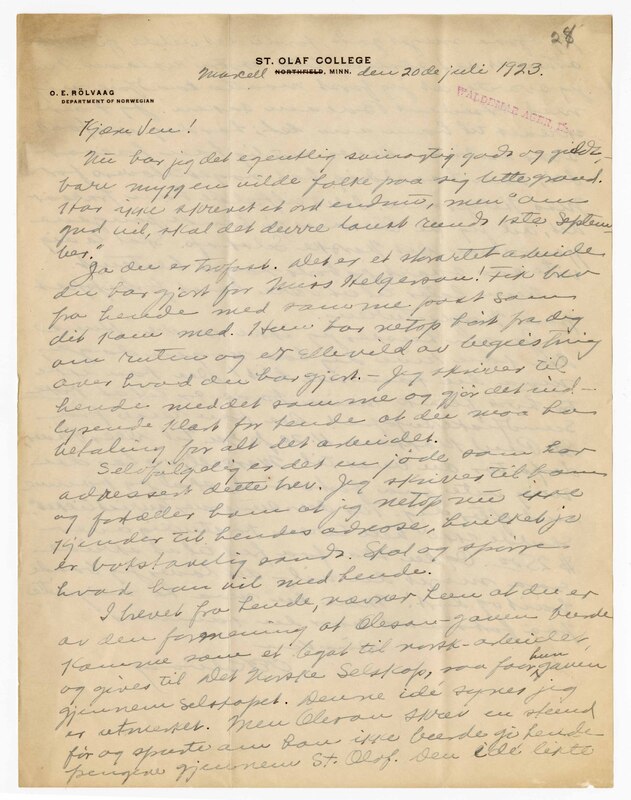 28
ST. OLAF COLLEGE
NORTHFIELD, MINN.
Marcell den 20de juli 1923.
O. E. RÖLVAAG
DEPARTMENT OF NORWEGIAN
WALDEMAR AGER,
Kjære Ven!
Nu har jeg det egentlig godt og
bare myggen vilde falke paa sig lette grand.
Har ikke skrevet et ord endnu, men "om
gud vil, skal det løust rundt 1ste Septem-
ber."
Ja du er trofast. Det er et storartet arbeide
du har gjort for Miss Helgerson! Fik brev
fra hende med samme post som
dit kom med. Hun har netop hørt fra dig
om ruten og er ellevild av begeistring
over hvad du har gjort. – Jeg skriver til
hende med det samme og gjør det ind-
lysende klart for hende at du maa ha
betaling for alt det arbeidet.
Selvfølgelig er det en jøde som har
adressert dette brev. Jeg skriver til ham
og fortæller ham at jeg netop nu ikke
kjender til hendes adresse, hvilket jo
er bokstavelig sandt. Skal og spørre
hvad han vil med hende.
I brevet fra hende, nævner hun at du er
av den formening at Oleson-gaven burde
komme som et legat til norsk-arbeidet
og gives til Det Norske Selskap, saa faar hun gaven
gjennem Selskapet. Denne idé synes jeg
er utmerket. Men Oleson skrev en stund
før og spurte om han ikke burde gi hende
pengene gjennem St. Olaf. Den idé likte